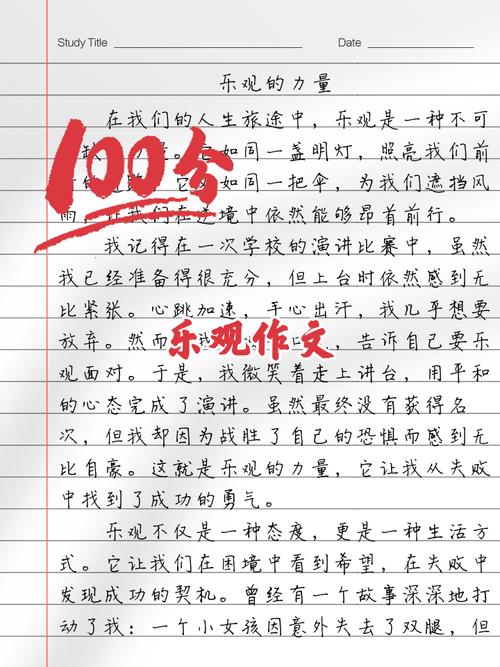 Study Title
Date
乐观的力量
在我们的人生旅途中，乐观是一种不可
100分
。它如同一盏明灯，照亮我们前
如同一把伞，为我们遮挡风
雨，让我们在逆境中依然能够昂首前行。
我记得在一次学校的演讲比赛中，虽然
我已经准备得很充分，但上台时依然感到无
比紧张。心跳加速，手心出汗，我几乎想要
放弃。然而
乐观作文
，告诉自己要乐
观面对。于是，我微笑着走上讲台，用平和
的心态完成了演讲。虽然最终没有获得名
次，但我却因为战胜了自己的恐惧而感到无
比自豪。这就是乐观的力量，它让我从失败
中找到了成功的勇气。
乐观不仅是一种态度，更是一种生活方
式。它让我们在困境中看到希望，在失败中
发现成功的契机。曾经有一个故事深深地打
动了我：一个小女孩因意外失去了双腿，但